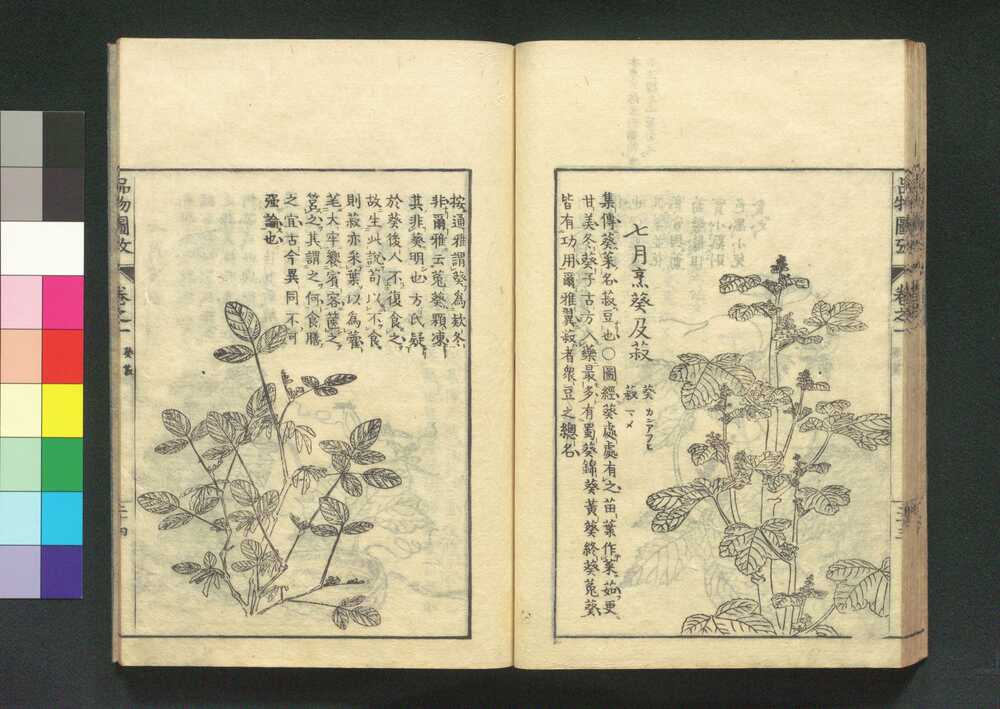 七月烹葵及菽
葵 カンアフヒ
菽 マメ
集傳葵菜名菽豆也〇圖經葵處處有之苗葉作菜茹更
甘美冬葵子古方入藥最多有蜀葵錦葵黃葵終葵菟葵
皆有功用爾雅翼菽者衆豆之總名
品物圖攷
卷之一
三十三
按通雅謂葵為欵冬
非爾雅云菟葵顆凍
其非葵明也方氏疑
於葵後人不復食之
故生此說苟以不食
則菽亦采葉以為藿
芼大牢禮賓客筐之
筥之其謂之何食膳
之宜古今異同不可
强論也
品物圖攷
卷之一
葵 菽
三十四